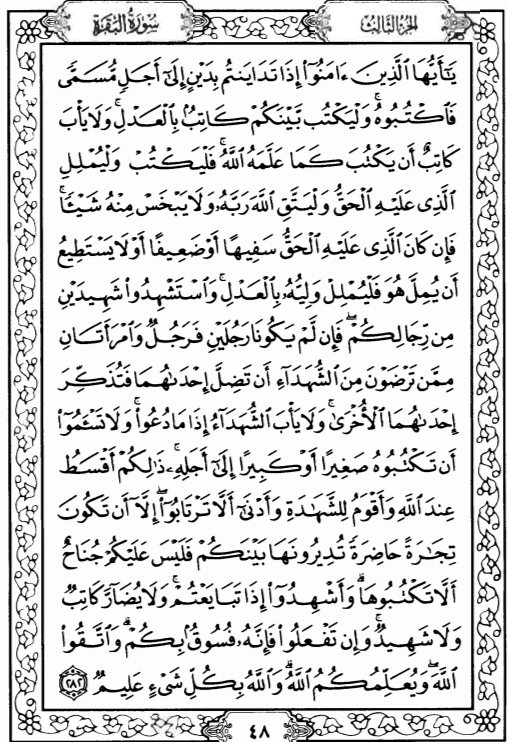 الجزء الثالث سورة البقرة
يَـٰٓأَيُّهَا ٱلَّذِينَ ءَامَنُوٓا۟ إِذَا تَدَايَنتُم بِدَيْنٍ إِلَىٰٓ أَجَلٍ مُّسَمًّى
فَٱكْتُبُوهُ ۚ وَلْيَكْتُب بَّيْنَكُمْ كَاتِبٌۢ بِٱلْعَدْلِ ۚ وَلَا يَأْبَ
كَاتِبٌ أَن يَكْتُبَ كَمَا عَلَّمَهُ ٱللَّهُ ۚ فَلْيَكْتُبْ وَلْيُمْلِلِ
ٱلَّذِى عَلَيْهِ ٱلْحَقُّ وَلْيَتَّقِ ٱللَّهَ رَبَّهُۥ وَلَا يَبْخَسْ مِنْهُ شَيْـًٔا ۚ
فَإِن كَانَ ٱلَّذِى عَلَيْهِ ٱلْحَقُّ سَفِيهًا أَوْ ضَعِيفًا أَوْ لَا يَسْتَطِيعُ
أَن يُمِلَّ هُوَ فَلْيُمْلِلْ وَلِيُّهُۥ بِٱلْعَدْلِ ۚ وَٱسْتَشْهِدُوا۟ شَهِيدَيْنِ
مِن رِّجَالِكُمْ ۖ فَإِن لَّمْ يَكُونَا رَجُلَيْنِ فَرَجُلٌ وَٱمْرَأَتَانِ
مِمَّن تَرْضَوْنَ مِنَ ٱلشُّهَدَآءِ أَن تَضِلَّ إِحْدَىٰهُمَا فَتُذَكِّرَ
إِحْدَىٰهُمَا ٱلْأُخْرَىٰ ۚ وَلَا يَأْبَ ٱلشُّهَدَآءُ إِذَا مَا دُعُوا۟ ۚ وَلَا تَسْـَٔمُوٓا۟
أَن تَكْتُبُوهُ صَغِيرًا أَوْ كَبِيرًا إِلَىٰٓ أَجَلِهِۦ ۚ ذَٰلِكُمْ أَقْسَطُ
عِندَ ٱللَّهِ وَأَقْوَمُ لِلشَّهَـٰدَةِ وَأَدْنَىٰٓ أَلَّا تَرْتَابُوٓا۟ ۖ إِلَّآ أَن تَكُونَ
تِجَـٰرَةً حَاضِرَةً تُدِيرُونَهَا بَيْنَكُمْ فَلَيْسَ عَلَيْكُمْ جُنَاحٌ
أَلَّا تَكْتُبُوهَا ۗ وَأَشْهِدُوٓا۟ إِذَا تَبَايَعْتُمْ ۚ وَلَا يُضَآرَّ كَاتِبٌ
وَلَا شَهِيدٌ ۚ وَإِن تَفْعَلُوا۟ فَإِنَّهُۥ فُسُوقٌۢ بِكُمْ ۗ وَٱتَّقُوا۟
ٱللَّهَ ۖ وَيُعَلِّمُكُمُ ٱللَّهُ ۗ وَٱللَّهُ بِكُلِّ شَىْءٍ عَلِيمٌ ٢٨٢
٤٨